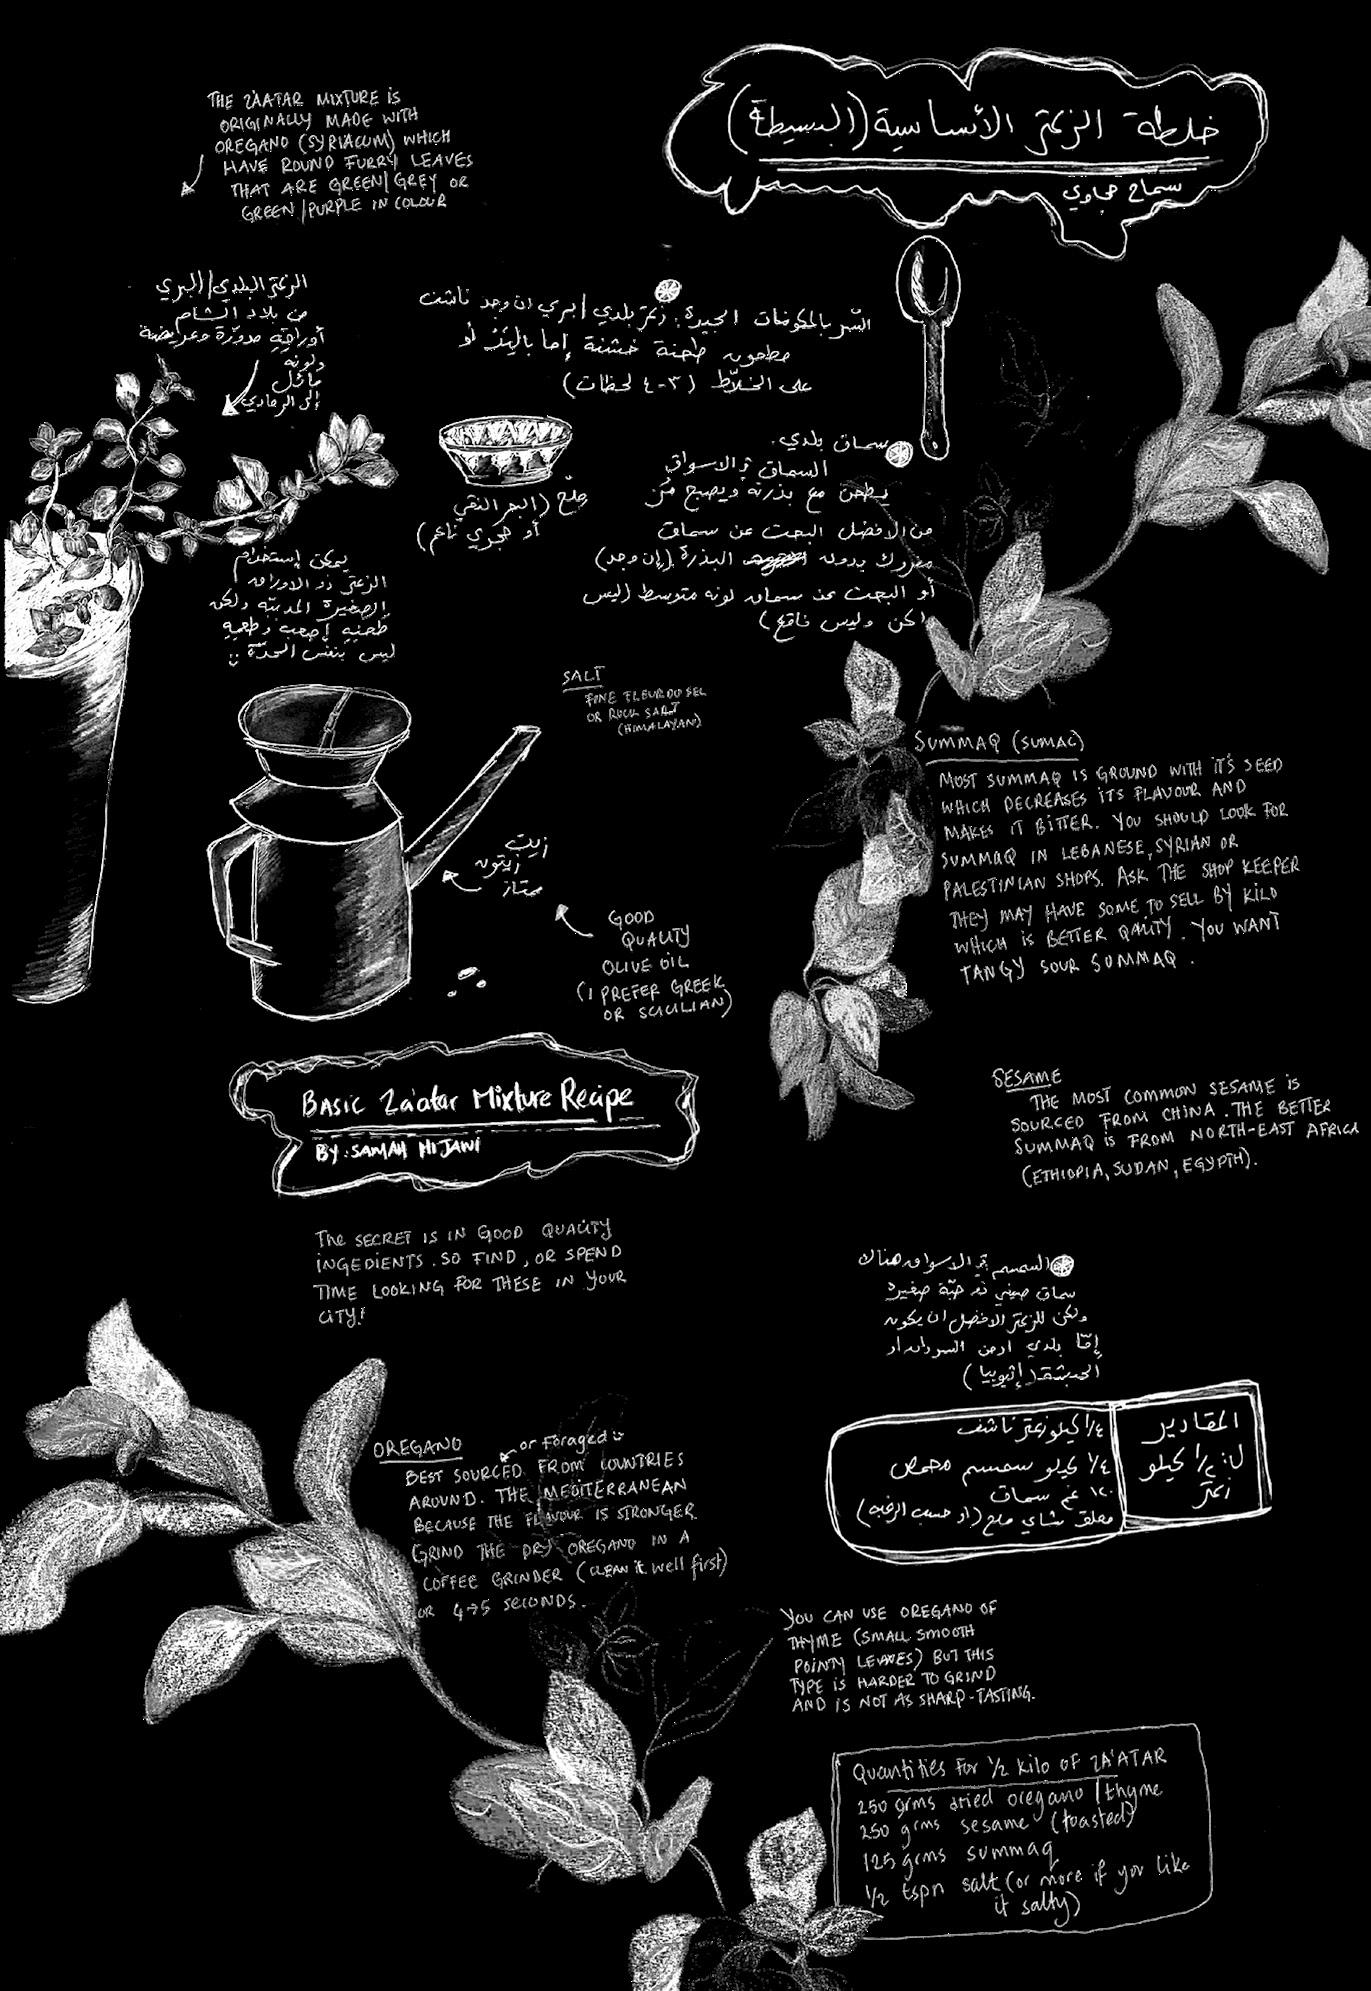 THE ZA'ATAR MIXTURE IS
ORIGINALLY MADE WITH
OREGANO (SYRIACUM) WHICH
HAVE ROUND FURRY LEAVES
THAT ARE GREEN/GREY OR
GREEN/PURPLE IN COLOUR
خلطة الزعتر الأساسية (البسيطة)
سماح حجاوي
الزعتر البلدي/البري
من بلاد الشام
أوراقه مدوّرة وعريضة
ولونه
مائل
إلى الرمادي
السّر بالمكونات الجيدة: زعتر بلدي/بري إن وجد ناشف
مطحون طحنة خشنة إما باليد أو
على الخلّاط (٣-٤ لحظات)
سماق بلدي.
السماق في الاسواق
يطحن مع بذرته ويصبح مُر
من الافضل البحث عن سماق
مفروك بدون البذرة (إن وجد)
أو البحث عن سماق لونه متوسط (ليس
داكن وليس فاقع)
ملح (البحر النقي
أو حجري ناعم)
يمكن إستخدام
الزعتر ذو الاوراق
الصغيرة المدببة ولكن
طحنه إصعب وطعمه
ليس بنفس الحدّة :
SALT
FINE FLEUR DU SEL
OR ROCK SALT
(HIMALAYAN)
SUMMAQ (SUMAC)
MOST SUMMAQ IS GROUND WITH IT'S SEED
WHICH DECREASES ITS FLAVOUR AND
MAKES IT BITTER. YOU SHOULD LOOK FOR
SUMMAQ IN LEBANESE, SYRIAN OR
PALESTINIAN SHOPS. ASK THE SHOP KEEPER
THEY MAY HAVE SOME TO SELL BY KILO
WHICH IS BETTER QAILTY. YOU WANT
TANGY SOUR SUMMAQ.
زيت
زيتون
ممتاز
GOOD
QUALITY
OLIVE OIL
(I PREFER GREEK
OR SCICILIAN)
BASIC Za'atar Mixture Recipe
BY: SAMAH HIJAWI
SESAME
THE MOST COMMON SESAME IS
SOURCED FROM CHINA. THE BETTER
SUMMAQ IS FROM NORTH-EAST AFRICA
(ETHIOPIA, SUDAN, EGYPTH).
The SECRET IS IN GOOD QUALITY
INGEDIENTS. SO FIND, OR SPEND
TIME LOOKING FOR THESE IN YOUR
CITY!
السمسم في الاسواق هناك
سماق صيني ذو حبّة صغيرة
ولكن للزعتر الافضل ان يكون
إمّا بلدي او من السودان او
الحبشة (إثيوبيا)
المقادير
ل: ١/٢ كيلو
زعتر
١/٤ كيلو زعتر ناشف
١/٤ كيلو سمسم محمص
١٢٠ غم سماق
معلقة شاي ملح (او حسب الرغبة)
OREGANO
or Foraged
BEST SOURCED FROM COUNTRIES
AROUND. THE MEDITERRANEAN
BECAUSE THE FLAVOUR IS STRONGER
GRIND THE DRY OREGANO IN A
COFFEE GRINDER (CLEAN it well first)
OR 4→5 SECONDS.
YOU CAN USE OREGANO OF
THYME (SMALL SMOOTH
POINTY LEAVES) BUT THIS
TYPE IS HARDER TO GRIND
AND IS NOT AS SHARP-TASTING.
Quantities For ½ kilo OF ZA'ATAR
250 grms dried oregano/thyme
250 grms sesame (toasted)
125 grms summaq
1/2 tspn salt (or more if you like
it salty)